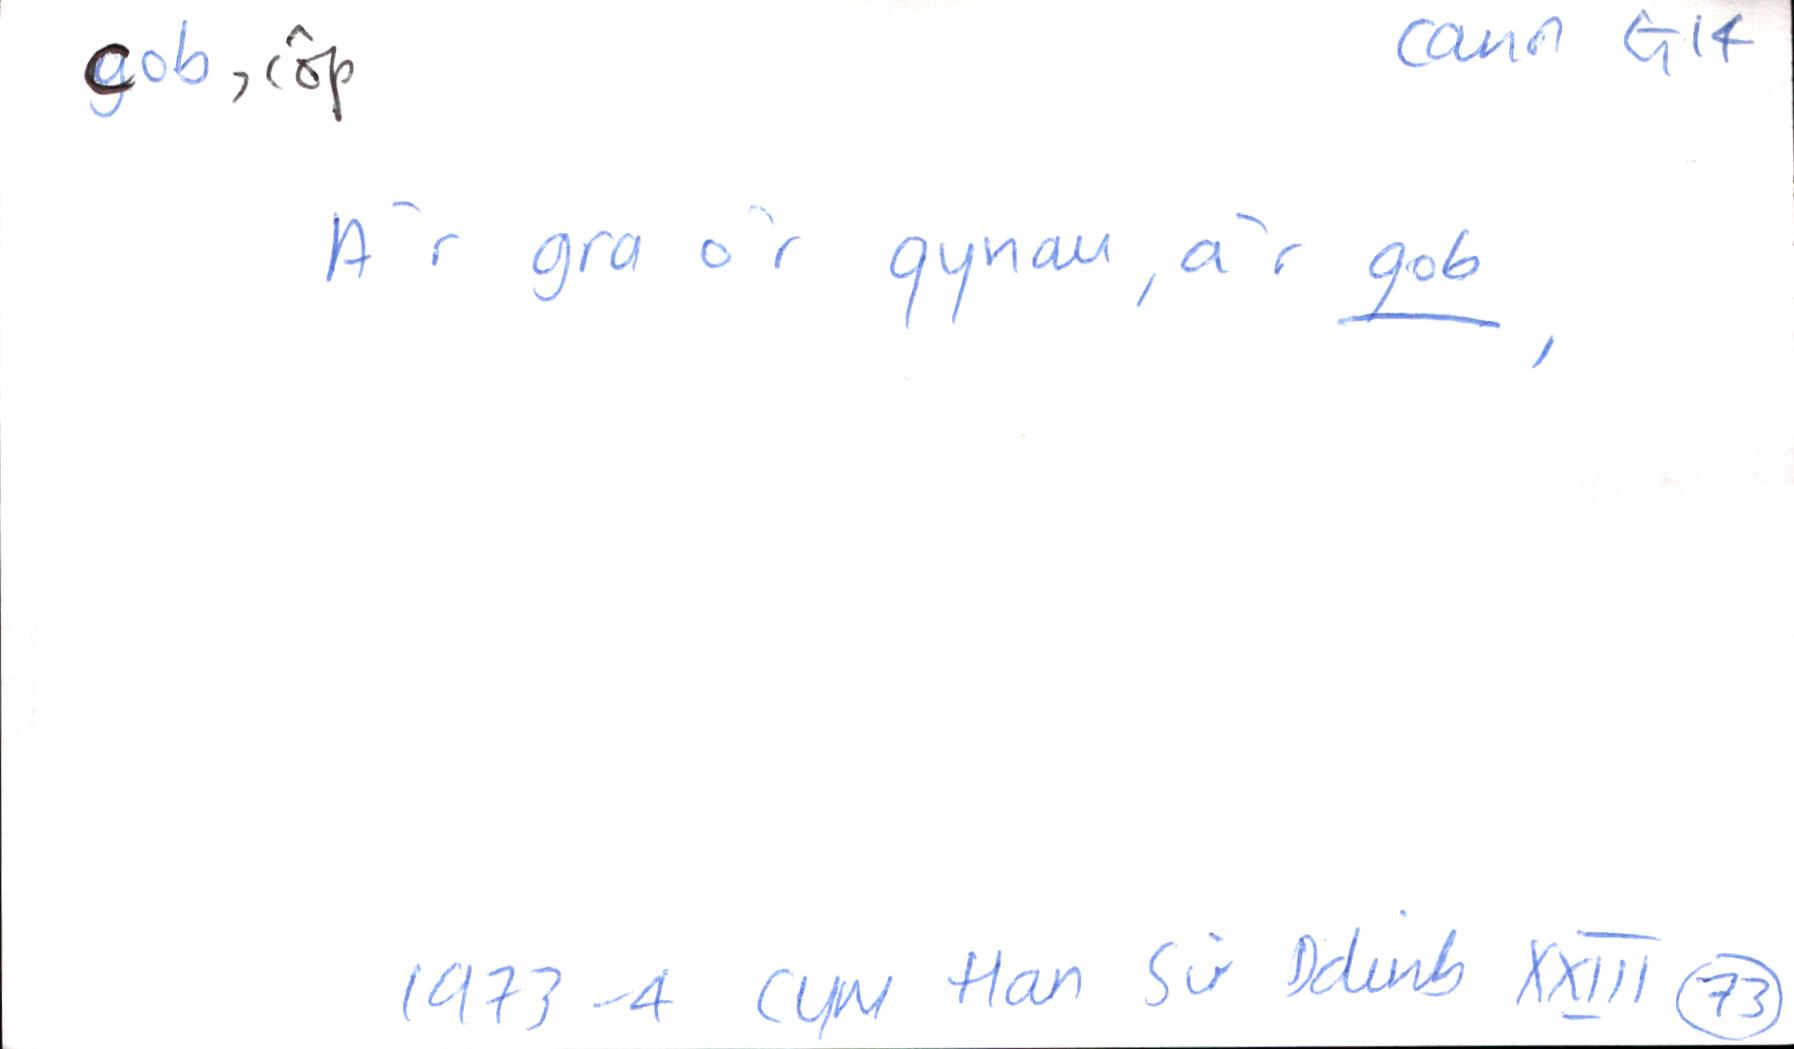 cob, côp canol G14
A'r gra o'r gynau, a'r gob,
1973-4 Cym Han Sir Ddinb XXIII 73